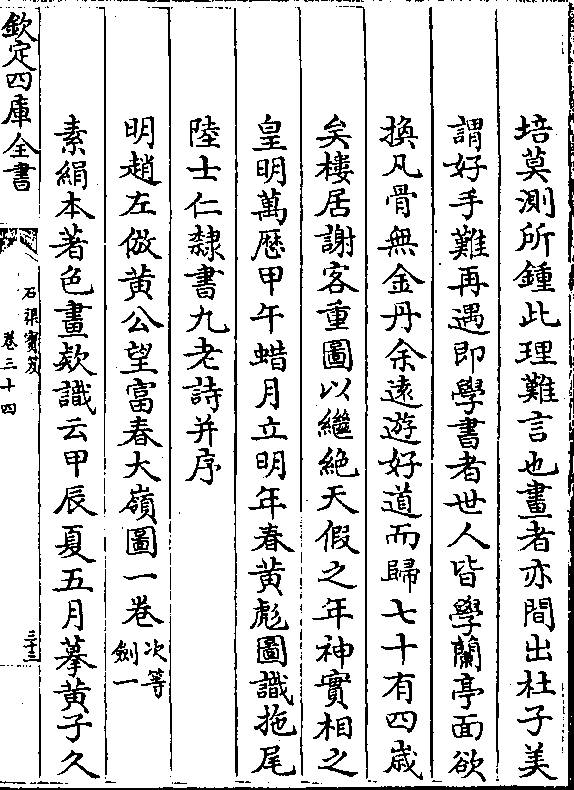 培莫測所鍾此理難言也畫者亦間出杜子美
謂好手難再遇即學書者世人皆學蘭亭面欲
換凡骨無金丹余遠遊好道而歸七十有四歲
矣樓居謝客重圖以繼絶天假之年神實相之
皇明萬歷甲午蜡月立明年春黄彪圖識拖尾
陸士仁隸書九老詩并序
明趙左倣黄公望富春大嶺圖一卷次等
劍一
素絹本著色畫欵識云甲辰夏五月摹黄子久
欽定四庫全書
石渠寶笈
卷三十四
三十三